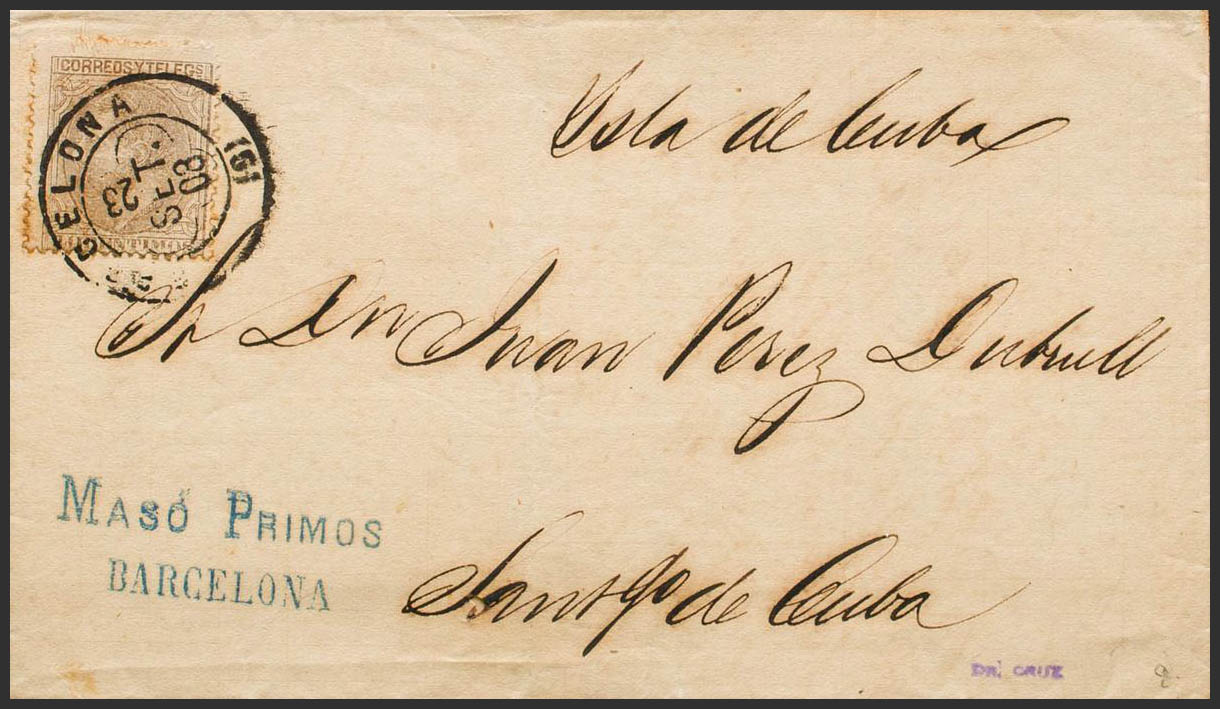 CORREOS Y TELEGS
CELONA (G)
23
SET.
80
Isla de Cuba
Sr Dn Juan Perez Dubrull
MASÓ PRIMOS
BARCELONA
Santgo de Cuba
DR. CRUZ